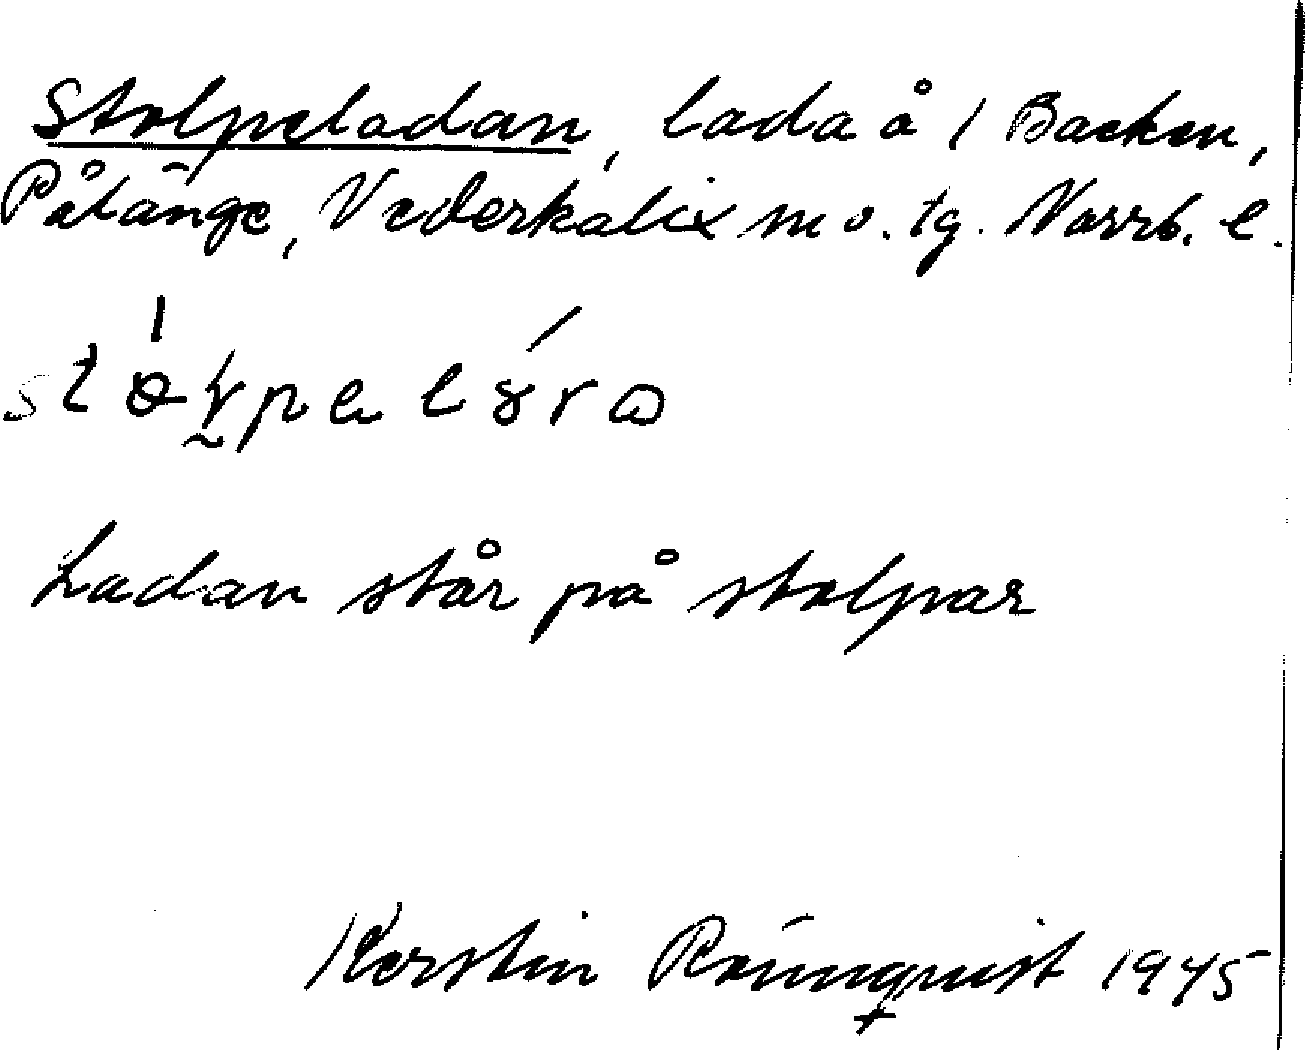 Stolpeladan, lada å 1 Backen,
Pålänge, Nederkalix sn o. tg. Norrb. l.
Ladan står på stolpar
Kerstin Rönnqvist 1945